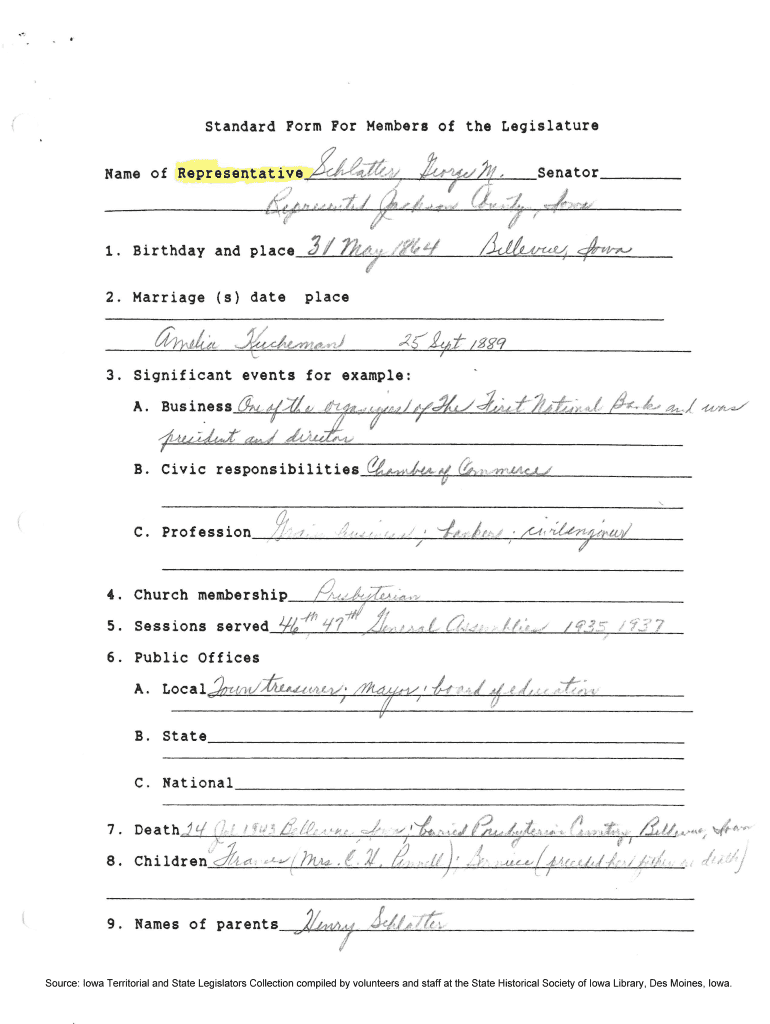 Standard Form For Members of the Legislature
Name of Representative Schlatter, George M. Senator
Represented Jackson County, Iowa
1. Birthday and place 31 May 1864 Bellevue, Iowa
2. Marriage (s) date place
Amelia Kucheman 25 Sept 1889
3. Significant events for example:
A. Business One of the organizers of The First National Bank and was
president and director
B. Civic responsibilities Chamber of Commerce
C. Profession Grain business; bankers; civil engineer
4. Church membership Presbyterian
5. Sessions served 46th, 47th General Assemblies 1935, 1937
6. Public Offices
A. Local Town treasurer; mayor; board of education
B. State
C. National
7. Death 24 1943 Bellevue, Iowa; buried Presbyterian Cemetery, Bellevue, Iowa
8. Children Frances (Mrs. H. ); (preceded her father in death)
9. Names of parents Henry Schlatter
Source: Iowa Territorial and State Legislators Collection compiled by volunteers and staff at the State Historical Society of Iowa Library, Des Moines, Iowa.